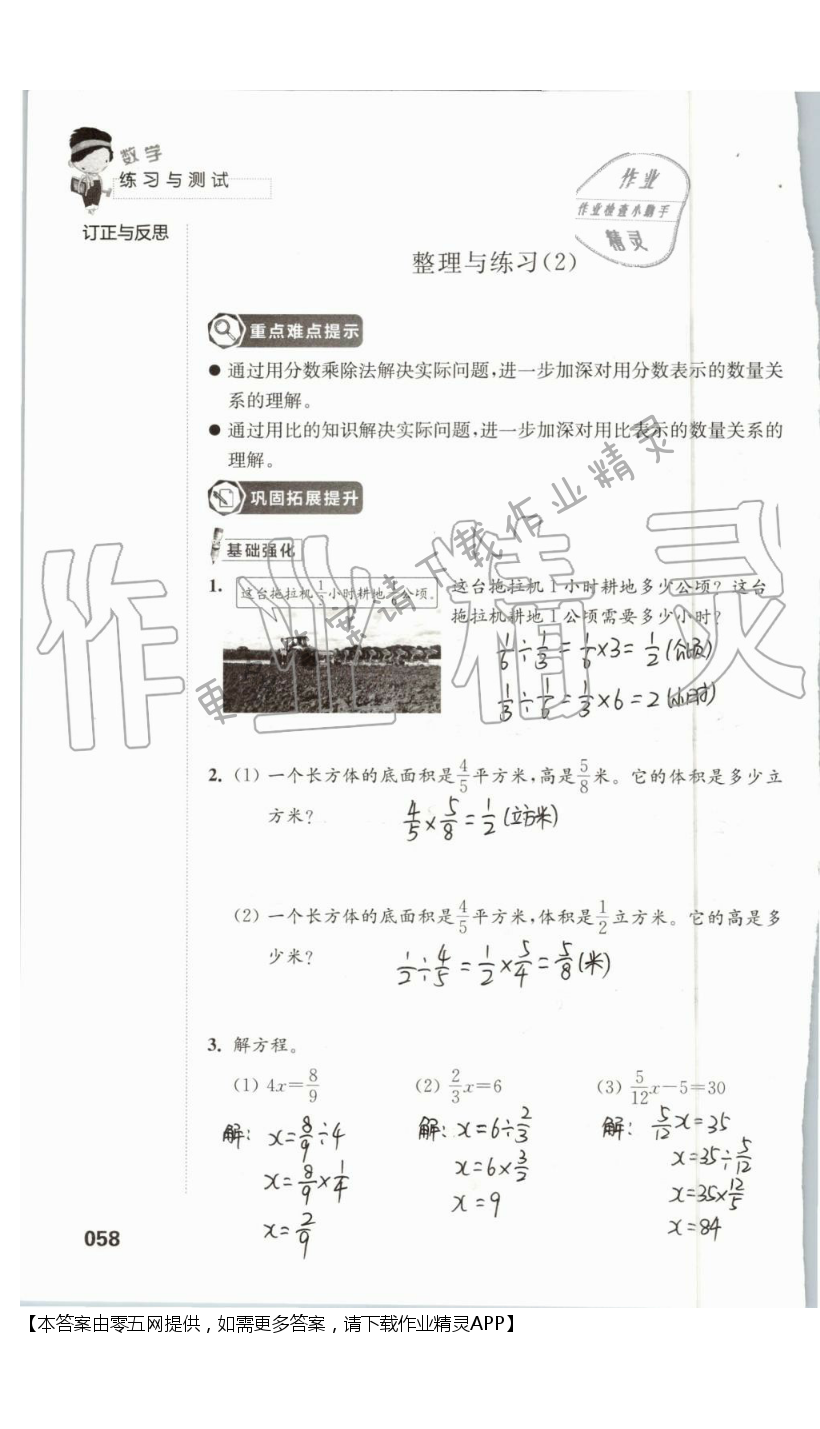 数学
练习与测试
订正与反思
作业
作业检查小助手
精灵
整理与练习(2)
重点难点提示
● 通过用分数乘除法解决实际问题,进一步加深对用分数表示的数量关
系的理解。
● 通过用比的知识解决实际问题,进一步加深对用比表示的数量关系的
理解。
巩固拓展提升
基础强化
1. 这台拖拉机1/3小时耕地1/6公顷。
这台拖拉机1小时耕地多少公顷?这台
拖拉机耕地1公顷需要多少小时?
1/6÷1/3=1/6×3=1/2(公顷)
1/3÷1/6=1/3×6=2(小时)
2. (1) 一个长方体的底面积是4/5平方米,高是5/8米。它的体积是多少立
方米?
4/5×5/8=1/2(立方米)
(2) 一个长方体的底面积是4/5平方米,体积是1/2立方米。它的高是多
少米?
1/2÷4/5=1/2×5/4=5/8(米)
3. 解方程。
(1) 4x=8/9 (2) 2/3x=6 (3) 5/12x-5=30
解: x=8/9÷4 解: x=6÷2/3 解: 5/12x=35
x=8/9×1/4 x=6×3/2 x=35÷5/12
x=2/9 x=9 x=35×12/5
x=84
058
作业精灵
更多答案请下载作业精灵
【本答案由零五网提供，如需更多答案，请下载作业精灵APP】